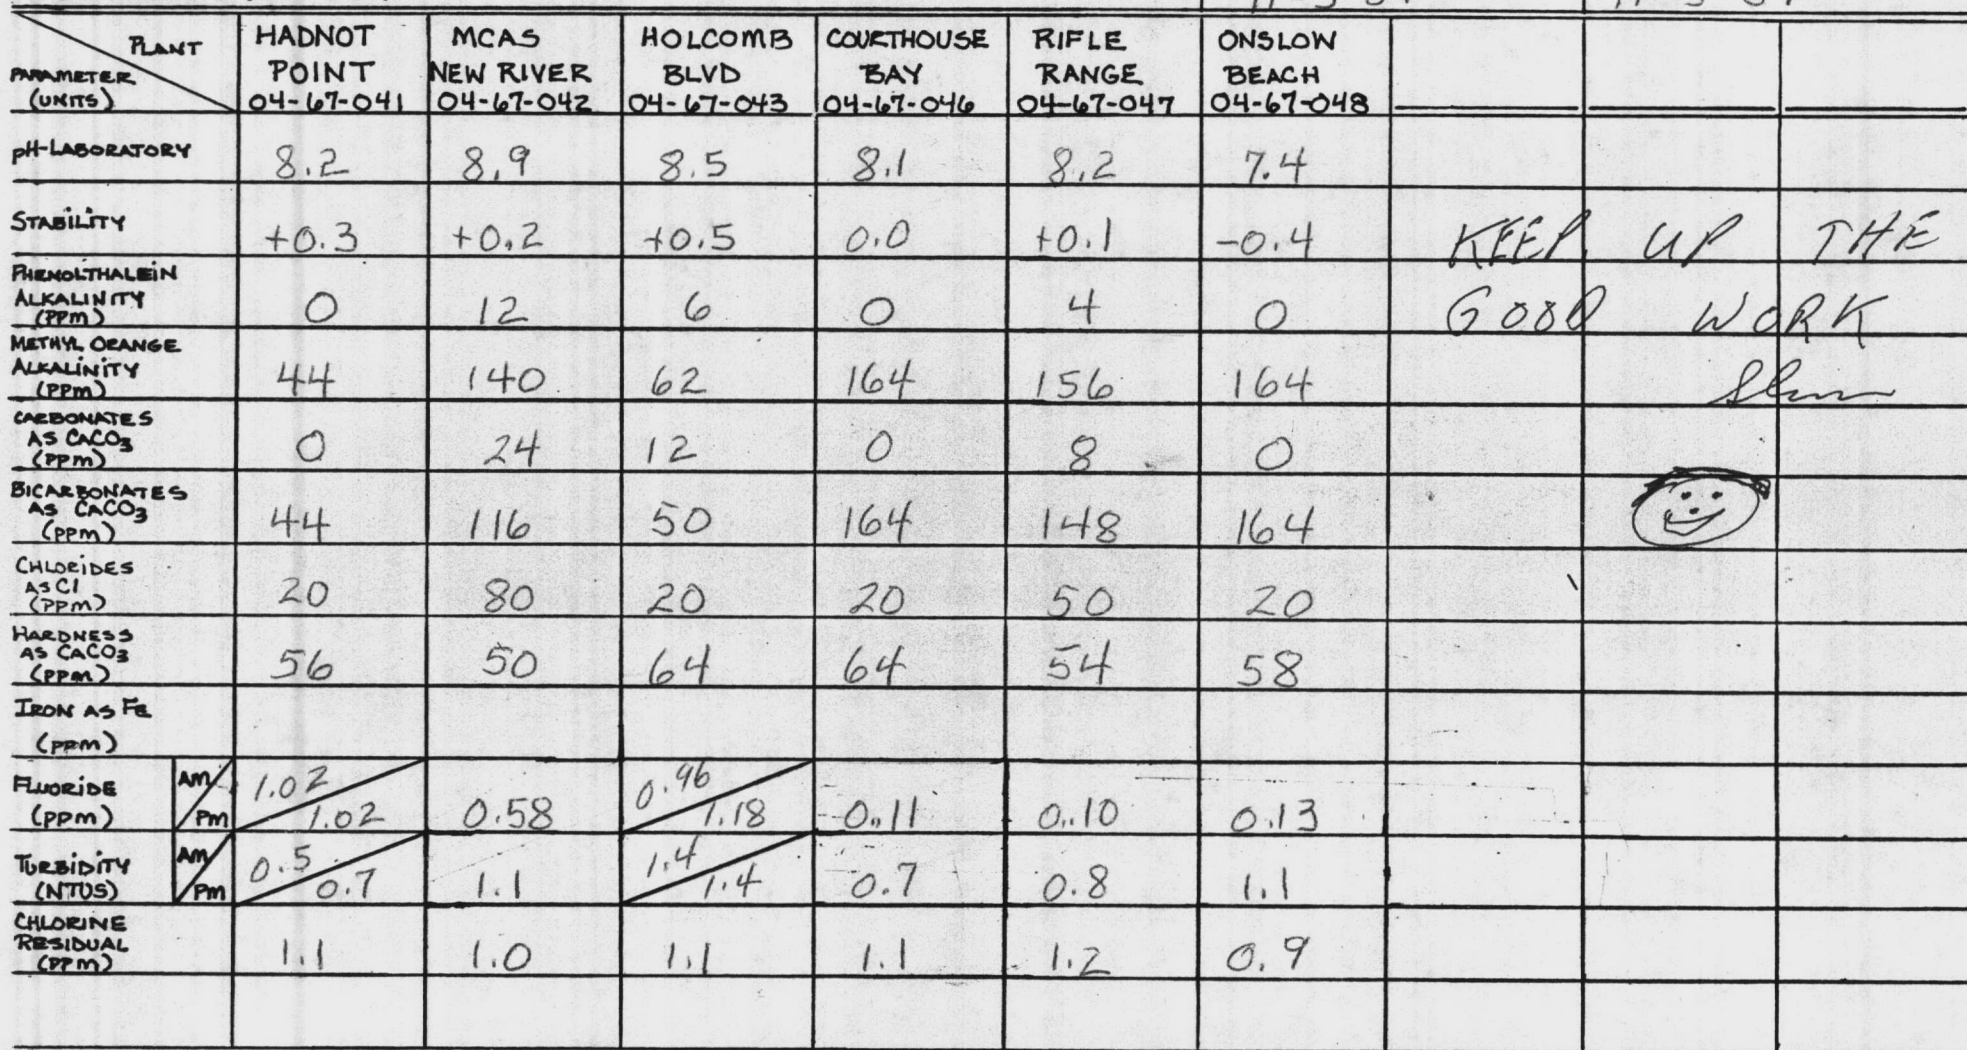 PLANT
PARAMETER
(UNITS)
HADNOT
POINT
04-67-041
MCAS
NEW RIVER
04-67-042
HOLCOMB
BLVD
04-67-043
COURTHOUSE
BAY
04-67-046
RIFLE
RANGE
04-67-047
ONSLOW
BEACH
04-67-048
pH-LABORATORY 8.2 8.9 8.5 8.1 8.2 7.4
STABILITY +0.3 +0.2 +0.5 0.0 +0.1 -0.4 KEEP UP THE
PHENOLTHALEIN
ALKALINITY 0 12 6 0 4 0 GOOD WORK
(PPM)
METHYL ORANGE
ALKALINITY 44 140 62 164 156 164
(PPM)
CARBONATES
AS CACO3 0 24 12 0 8 0
(PPM)
BICARBONATES
AS CACO3 44 116 50 164 148 164
(PPM)
CHLORIDES
AS Cl 20 80 20 20 50 20
(PPM)
HARDNESS
AS CACO3 56 50 64 64 54 58
(PPM)
IRON AS Fe
(PPM)
FLUORIDE AM 1.02 0.96
(PPM) PM 1.02 0.58 1.18 0.11 0.10 0.13
TURBIDITY AM 0.5 1.4
(NTUS) PM 0.7 1.1 1.4 0.7 0.8 1.1
CHLORINE
RESIDUAL 1.1 1.0 1.1 1.1 1.2 0.9
(PPM)